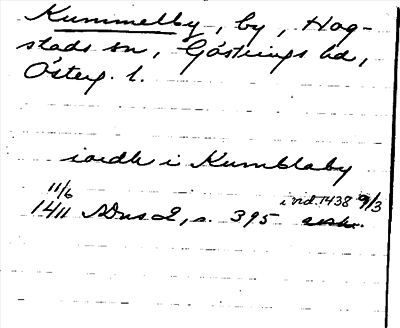 Kummelby, by, Hog-
stads sn, Göstrings hd,
Österg. l.
iordh i Kumblaby
11/6 1411 SDns 2, s. 395 i vid. 1438 9/3